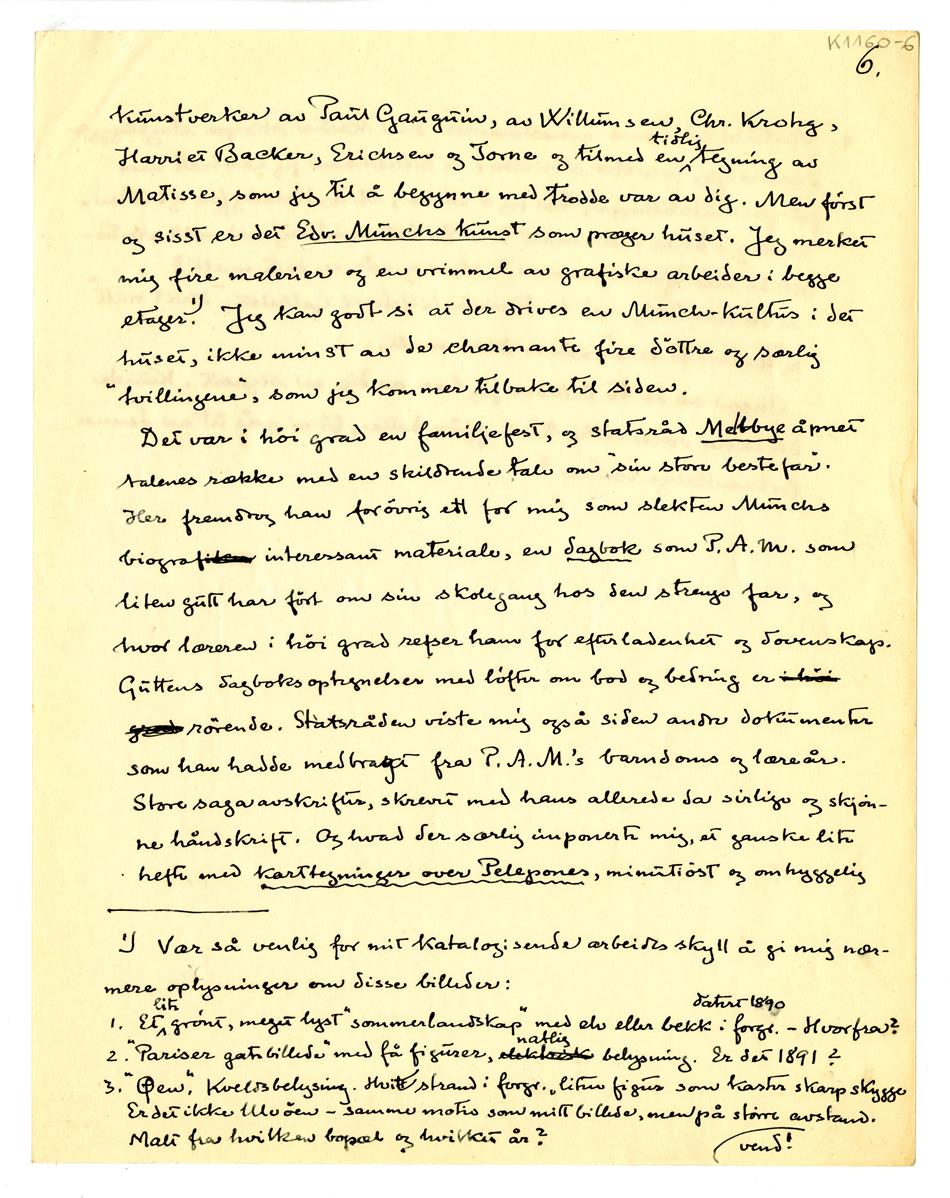 K1160-6
6.
kunstverker av Paul Gauguin, av Willumsen, Chr. Krohg,
Harriet Backer, Erichsen og Torne og tilmed en tidlig tegning av
Matisse, som jeg til å begynne med trodde var av dig. Men först
og sisst er det Edv. Munchs kunst som præger huset. Jeg merket
mig fire malerier og en vrimmel av grafiske arbeider i begge
etager.¹⁾ Jeg kan godt si at der drives en Munch-kultus i det
huset, ikke minst av de charmante fire döttre og særlig
"tvillingene", som jeg kommer tilbake til siden.
Det var i höi grad en familjefest, og statsråd Mellbye åpnet
talenes række med en skildrende tale om "sin store bestefar".
Her fremdrog han forövrig ett for mig som slekten Munchs
biograf interessant materiale, en dagbok som P. A. M. som
liten gutt har fört om sin skolegang hos den strenge far, og
hvor læreren i höi grad refser ham for efterladenhet og dovenskap.
Guttens dagboksoptegnelser med löfter om bod og bedring er i höi
grad rörende. Statsråden viste mig også siden andre dokumenter
som han hadde medbragt fra P. A. M.'s barndoms og læreår.
Store saga avskrifter, skrevet med hans allerede da sirlige og skjön-
ne håndskrift. Og hvad der særlig imponerte mig, et ganske lite
hefte med karttegninger over Pelepones, minutiöst og omhyggelig
¹⁾ Vær så venlig for mit katalogisende arbeides skyll å gi mig nær-
mere oplysninger om disse billeder:
1. Et lite grönt, meget lyst "sommerlandskap" med elv eller bekk i forgr. datert 1890 – Hvorfra?
2. "Pariser gatebillede" med få figurer, elektrisk natlig belysning. Er det 1891?
3. "Öen", Kveldsbelysing. Hvit strand i forgr., liten figur som kaster skarp skygge
Er det ikke Ulvöen – samme motiv som mitt billede, men på större avstand.
Malt fra hvilken bopæl og hvilket år?
vend!